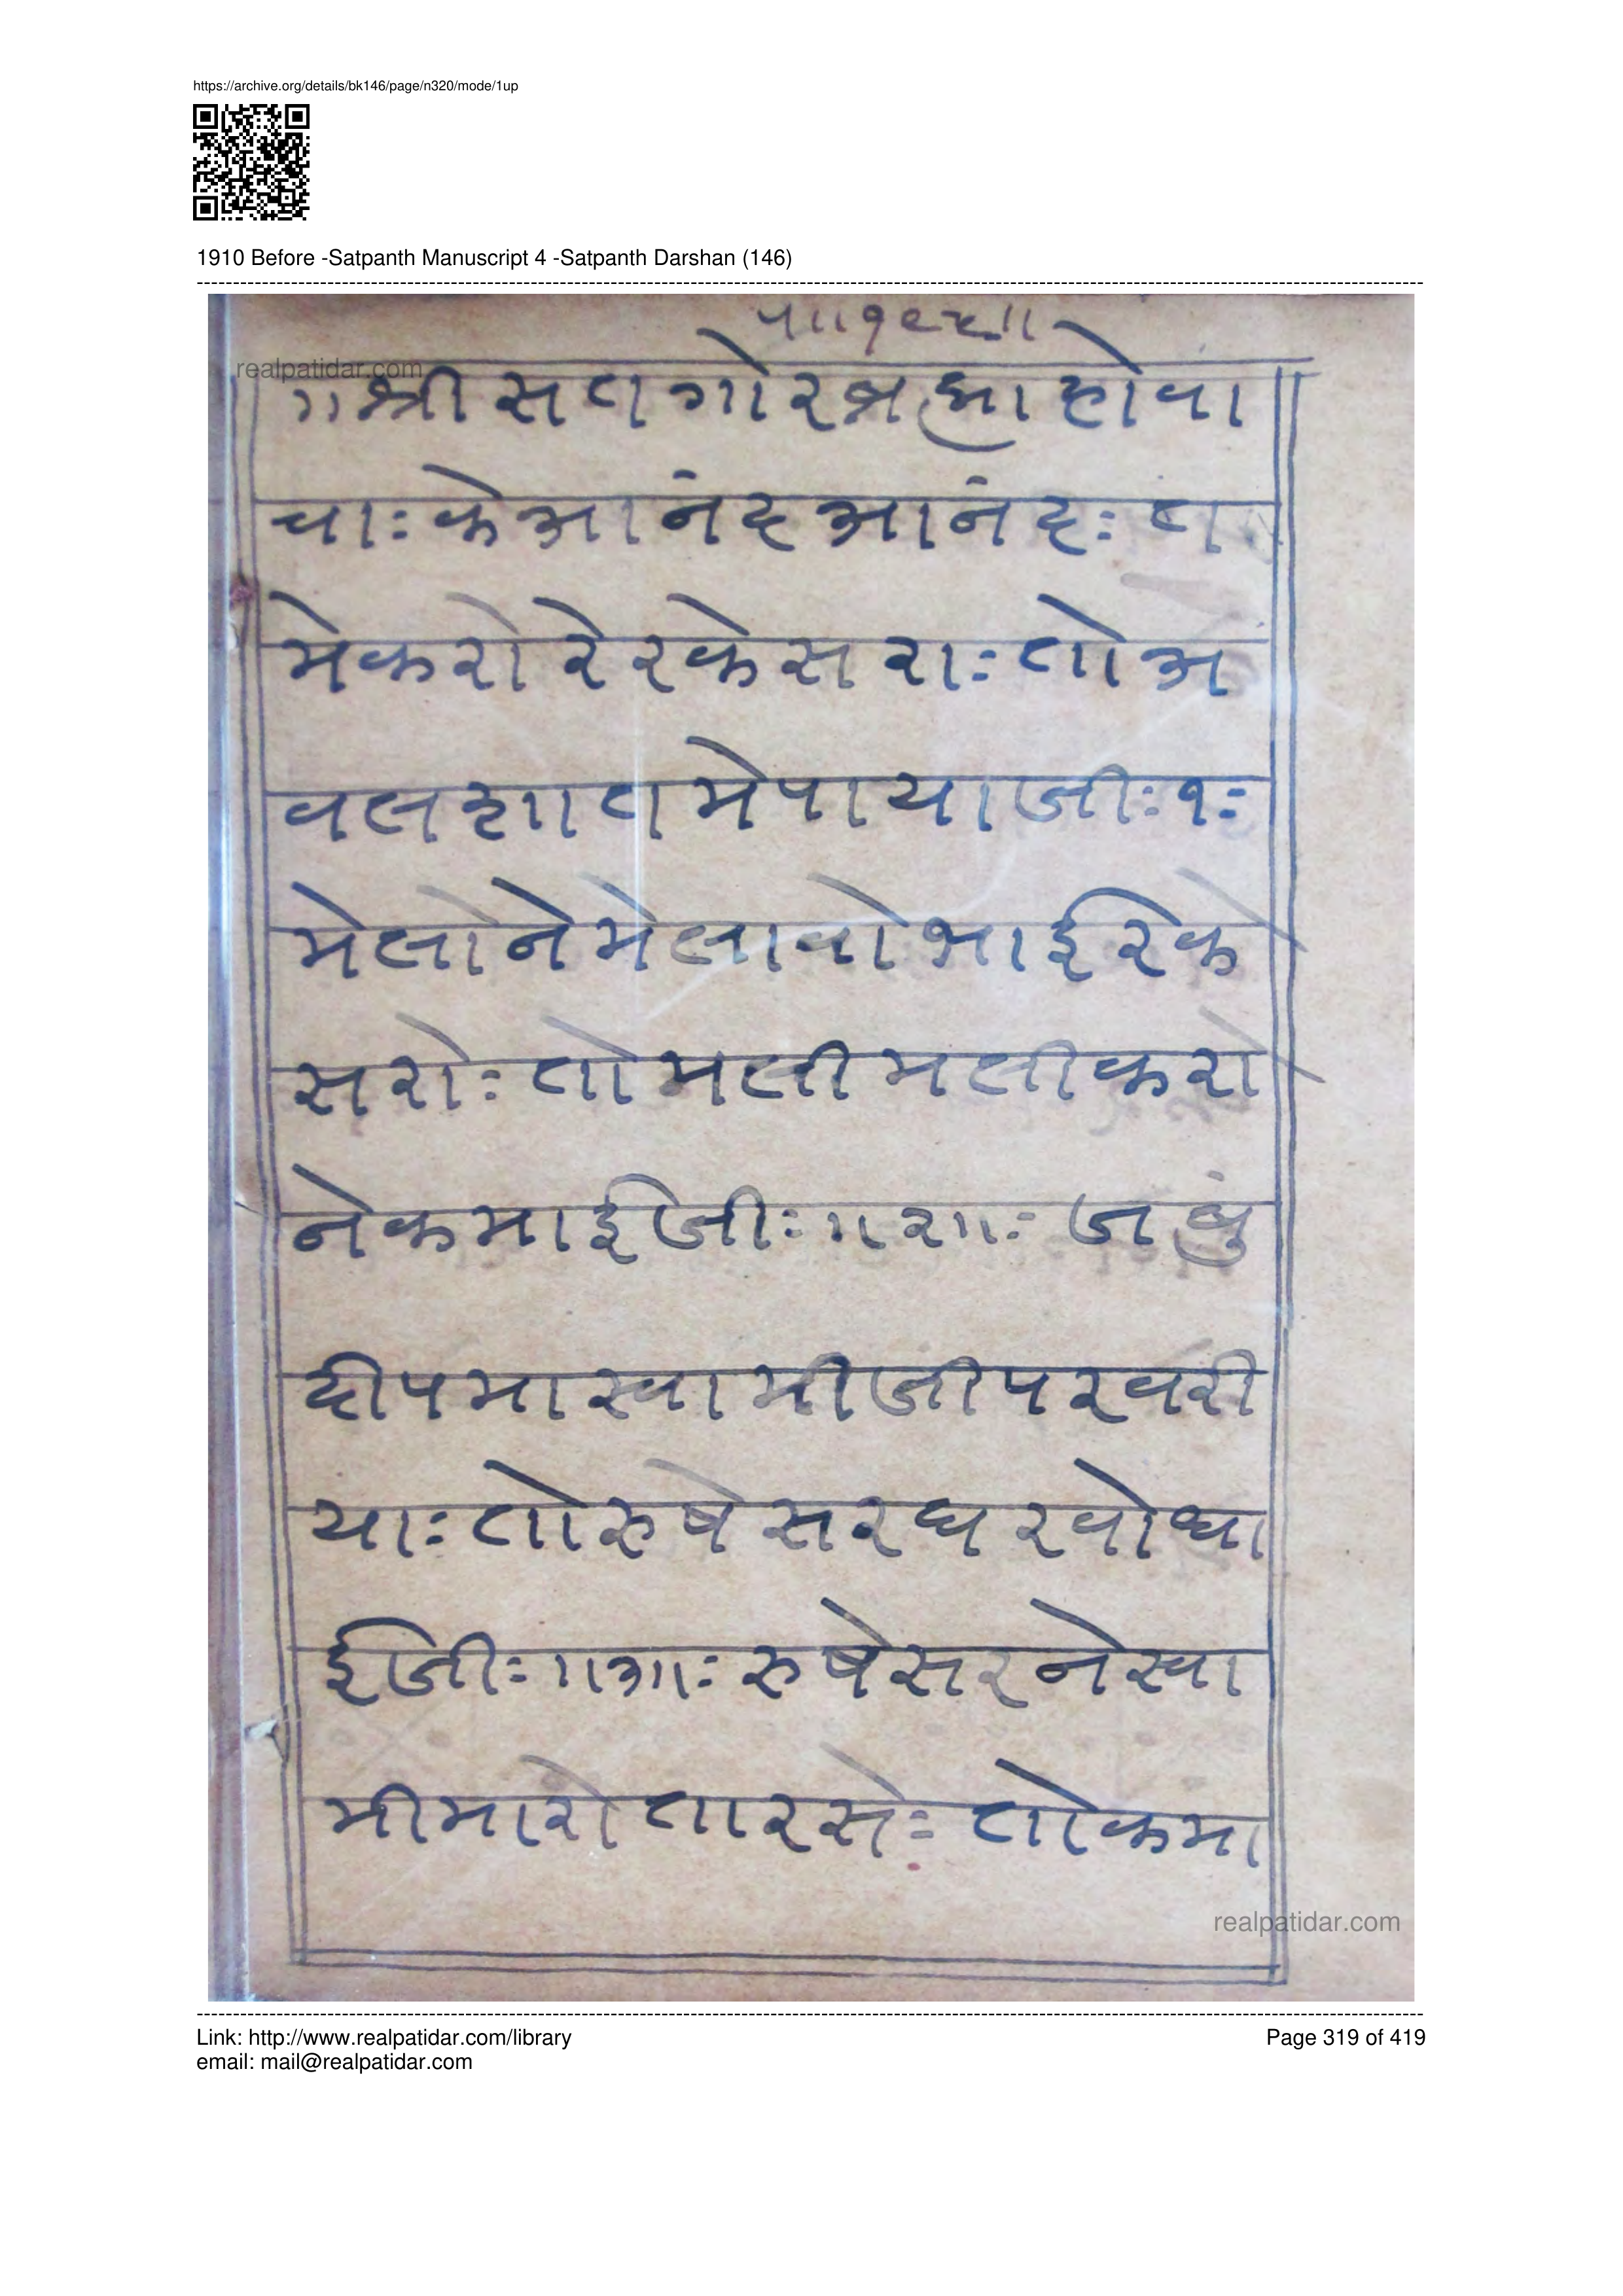 https://archive.org/details/bk146/page/n320/mode/1up
1910 Before -Satpanth Manuscript 4 -Satpanth Darshan (146)
realpatidar.com
॥श्री सत गोर ब्रह्मा होवा
चाः के आनंद आनंदः त
मे करो रे रकेसराः तो अ
वल शात मे पायाजीः १ः
मेलो ने मेलावो भाई रके
सरोः तो मली मली करो
ने कमाईजीः ॥२॥ः जबुं
दीपमा स्वामीजी परवरी
याः तो रुषेसर घरवोधा
ईजीः ॥३॥ः रुषेसर ने स्वा
मी मारो तारसेः तो कमा
realpatidar.com
Link: http://www.realpatidar.com/library
Page 319 of 419
email: mail@realpatidar.com